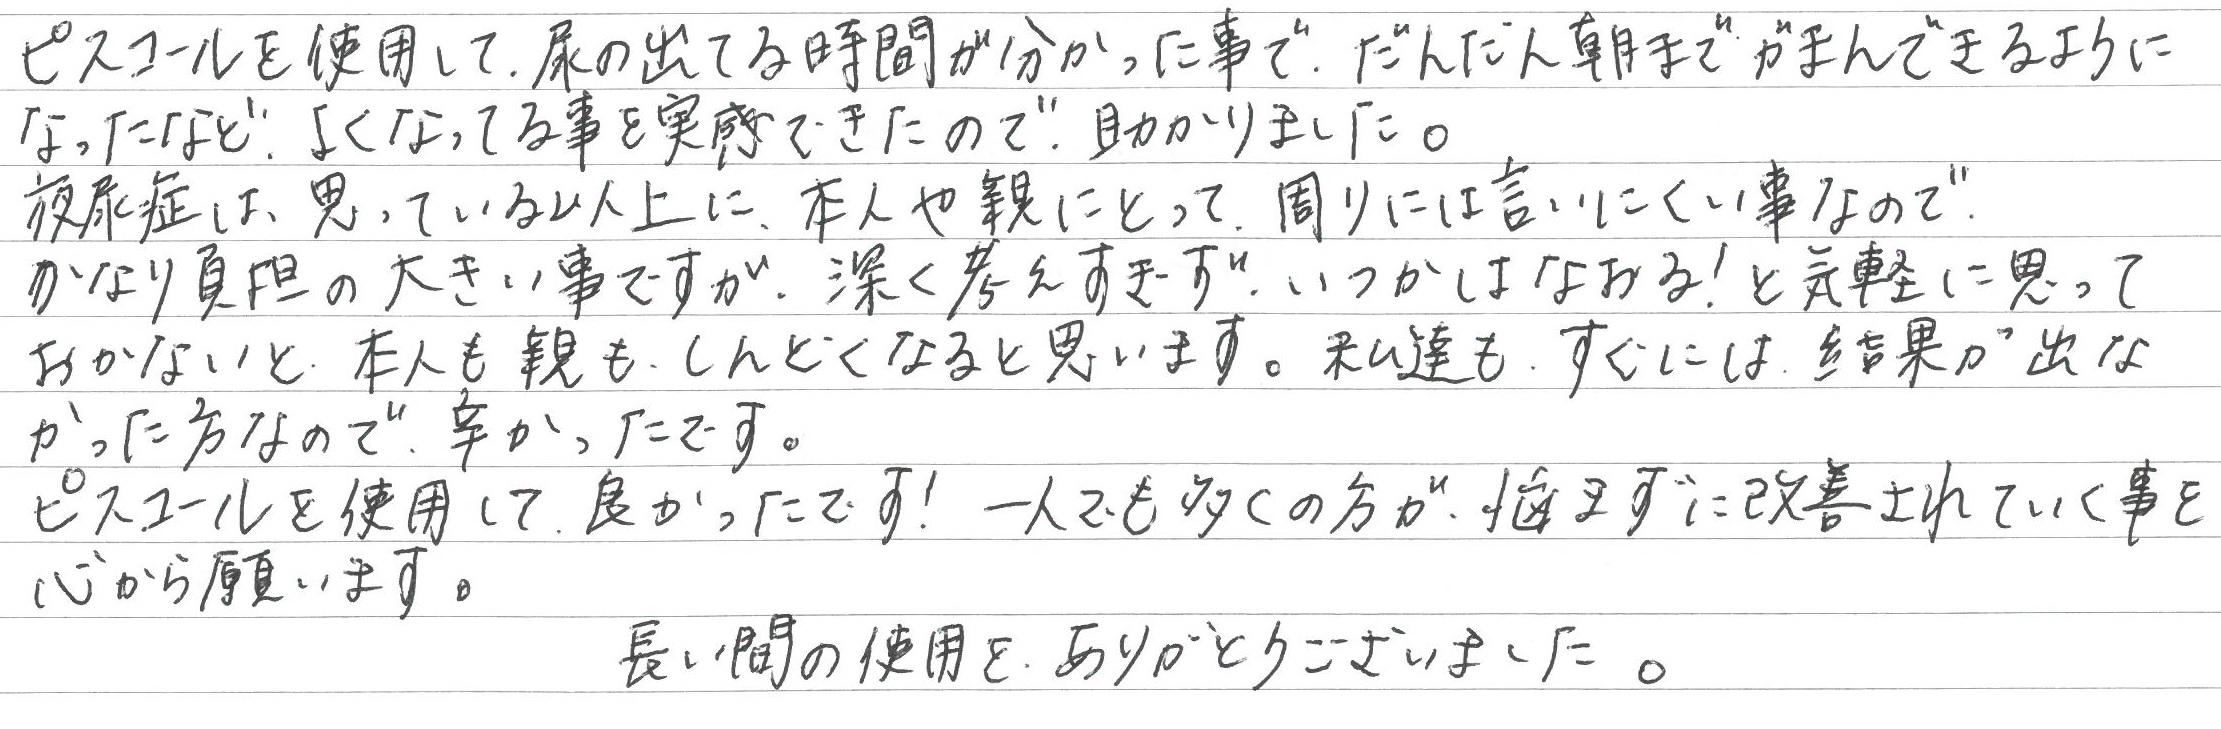 ピスコールを使用して、尿の出てる時間が分かった事で、だんだん朝までがまんできるように
なったなど、よくなってる事を実感できたので、助かりました。
夜尿症は、思っている以上に、本人や親にとって、周りには言いにくい事なので、
かなり負担の大きい事ですが、深く考えすぎず、いつかはなおる!と気軽に思って
おかないと、本人も親も、しんどくなると思います。私達も、すぐには、結果が出な
かった方なので、辛かったです。
ピスコールを使用して、良かったです!一人でも多くの方が、悩まずに改善されていく事を
心から願います。
長い間の使用を、ありがとうございました。